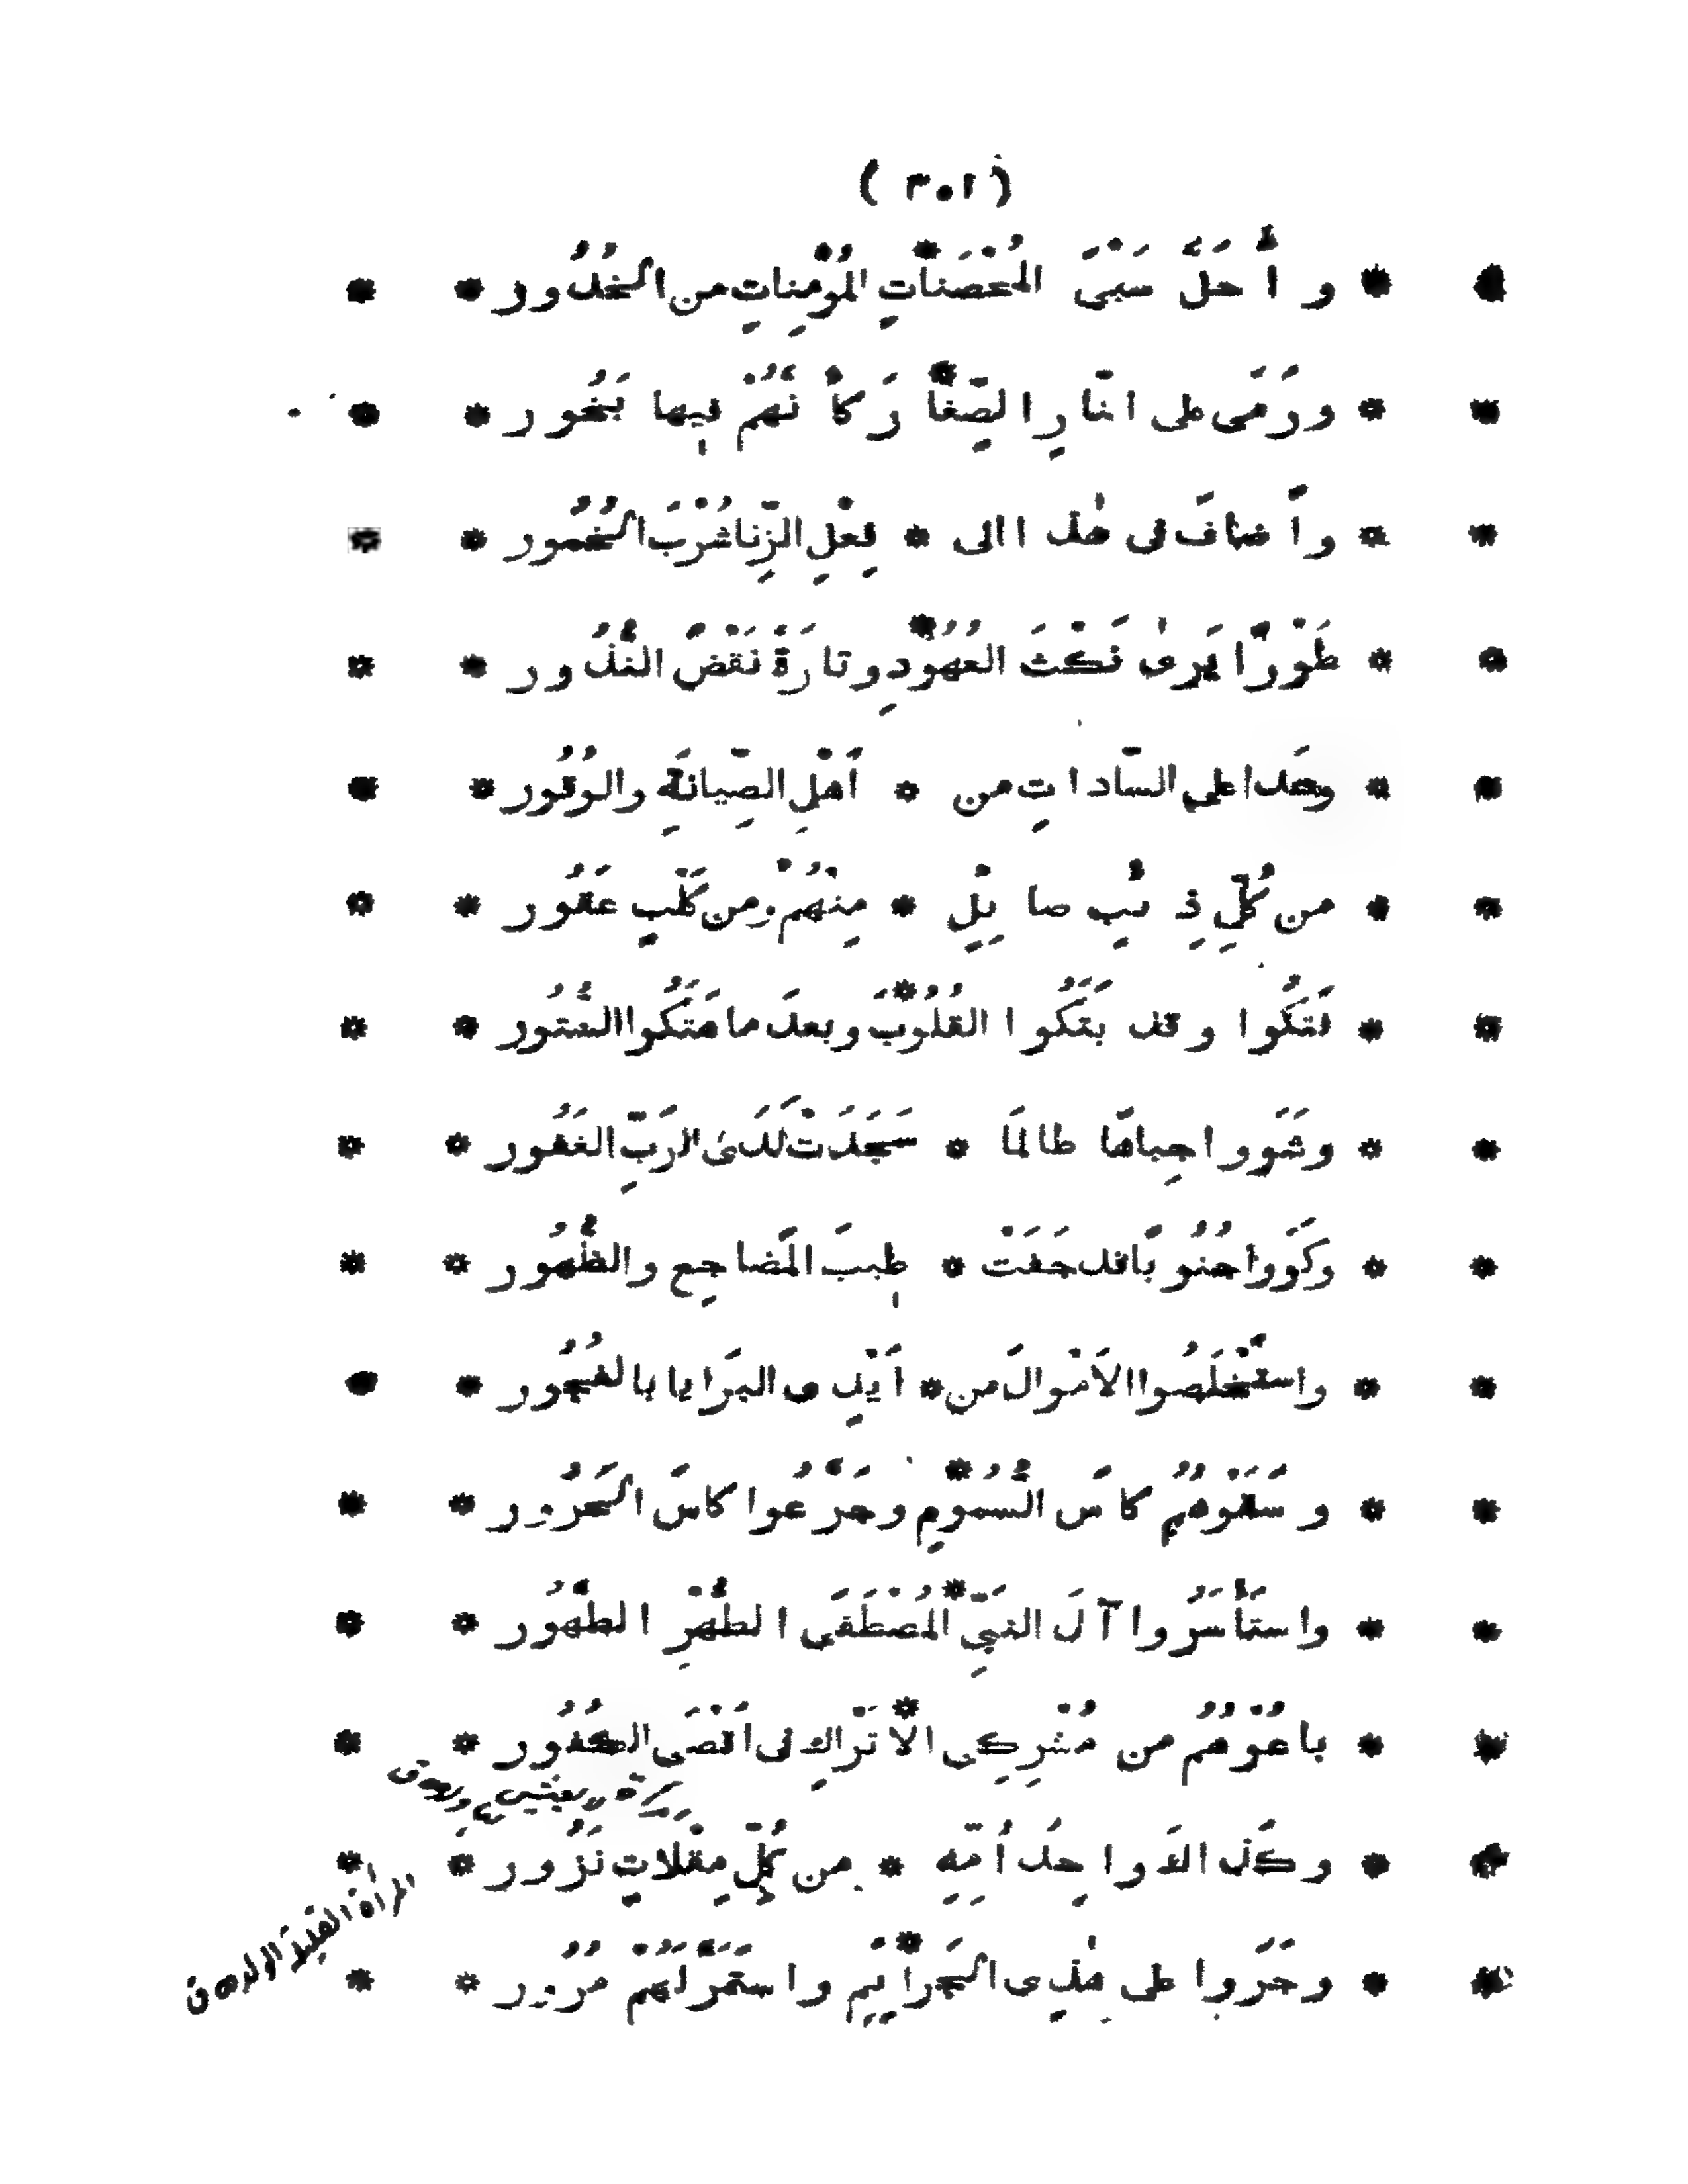 ( ٣٠١ )
* * وأَحَلَّ سَبْىَ المُحْصَناتِ * المُؤْمِناتِ من الخُدُور * *
* * ورَمَى على النّارِ الصِّغا * رَ كأَنَّهُمْ فيها بَخُور * *
* * وأَضافَ فى هٰذا الى * فِعْلِ الزِّنا شُرْبَ الخُمُور * *
* * طَوْرًا يَرىٰ نَكْثَ العُهُوْدِ * وتارَةً نَقْضَ النُّذُور * *
* * وعَدا على السّاداتِ من * أَهْلِ الصِّيانَةِ والوُقُور * *
* * من كُلِّ ذِئْبٍ صايِلٍ * مِنْهُمْ ومن كَلْبٍ عَقُور * *
* * فَتَكُوا وقد بَتَكُوا القُلُوْبَ * وبعدَ ما هَتَكُوا السُّتُور * *
* * وشَوَوا جِباهًا طالَما * سَجَدَتْ لَدَىٰ الرَبِّ الغَفُور * *
* * وكَوَوا جُنُوبًا قد جَفَتْ * طِيبَ المَضاجِعِ والظُّهُور * *
* * واستَخْلَصُوا الاَمْوالَ من * اَيْدِى البَرَايا بالفُجُور * *
* * وسَقَوْهُمُ كاسَ السُّمُوْمِ * وجَرَّعُوا كاسَ الحَرُور * *
* * واستَأْسَرُوا آلَ النبِيِّ * المُصْطَفَى الطُّهْرِ الطَّهُور * *
* * باعُوْهُمُ من مُشْرِكِى الا * تْراكِ فى اَقْصَى الكُفُور * *
* * وكَذا الفَوا حِدُ اُمِّهِ * من كُلِّ مِقْلاتٍ نَزُور * *
المرأة القليلة الولد ق
* * وجَرَوا على هٰذِى الجَرا * يِمِ واستَمَرَّ لَهُمْ مُرُور * *